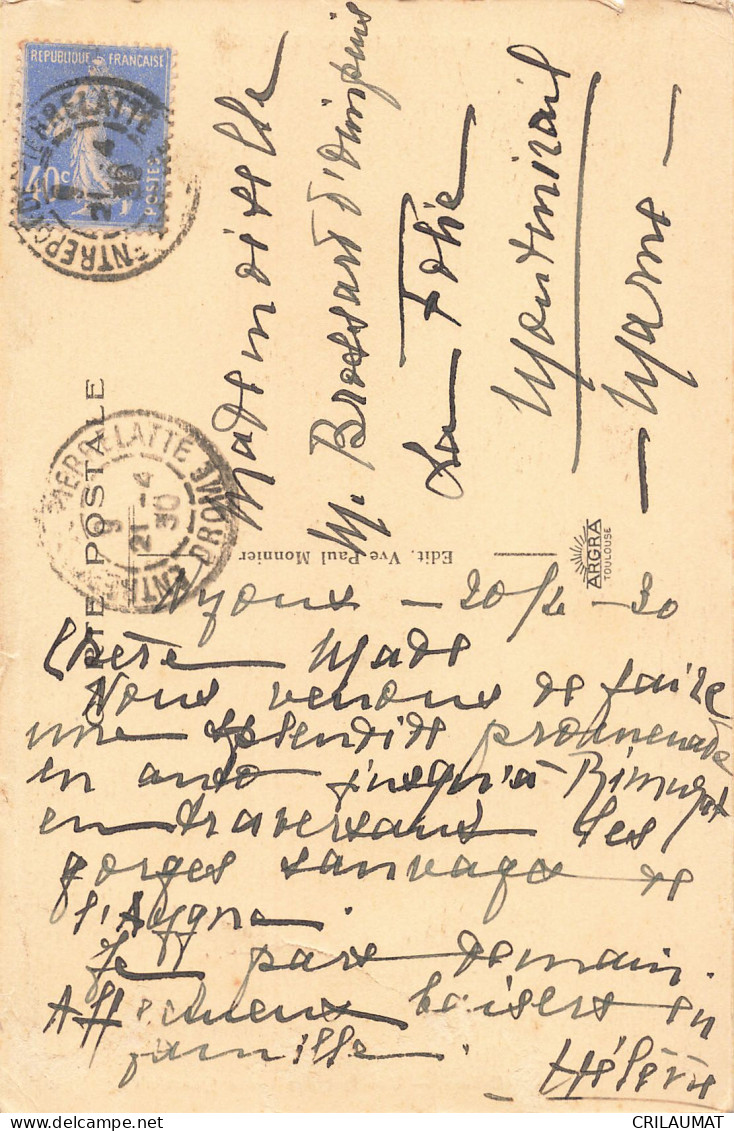 REPUBLIQUE FRANÇAISE
40c
POSTES
PIERRELATTE
21-4
30
ENTREPOT
CARTE POSTALE
PIERRELATTE DROME
9
21-4
30
Edit. Vve Paul Monnier
ARGRA
TOULOUSE
Mademoiselle
M. Brossard d'
La Folie
Montmirail
— Marne —
Nyons — 20/4 — 30
Chère Made
Nous venons de faire
une splendide promenade
en auto jusqu'à
en traversant les
gorges sauvages de
l'Aygue.
Je pars demain.
Affectueux baisers en
famille.
Hélène
CRILAUMAT